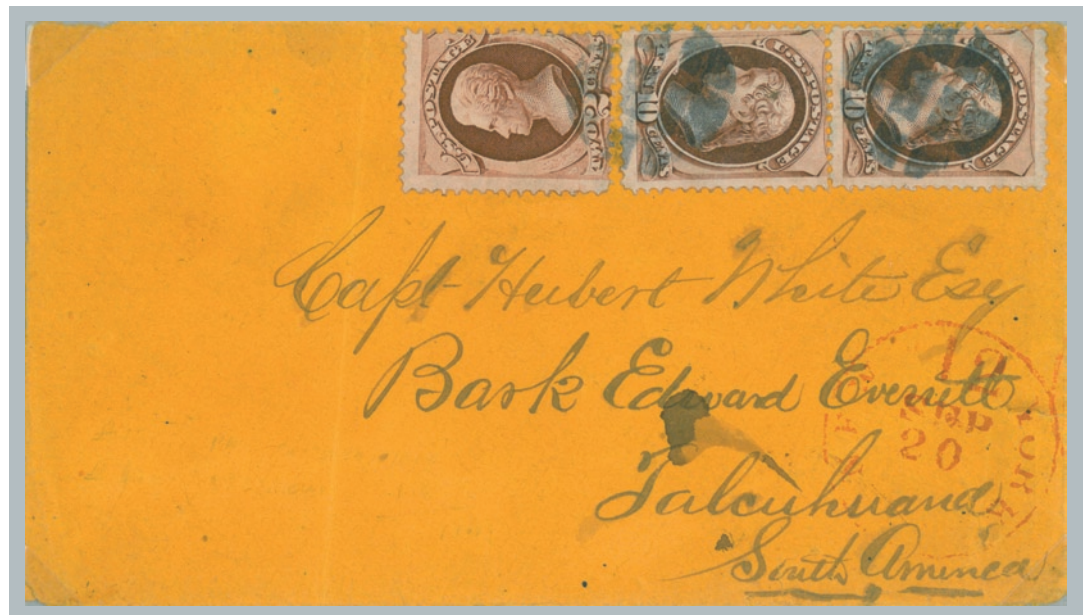 U.S. POSTAGE
U.S. POSTAGE
10 CENTS
U.S. POSTAGE
10 CENTS
Capt Hubert White Esq
Bark Edward Everett
Talcuhuano
South America
SEP
20